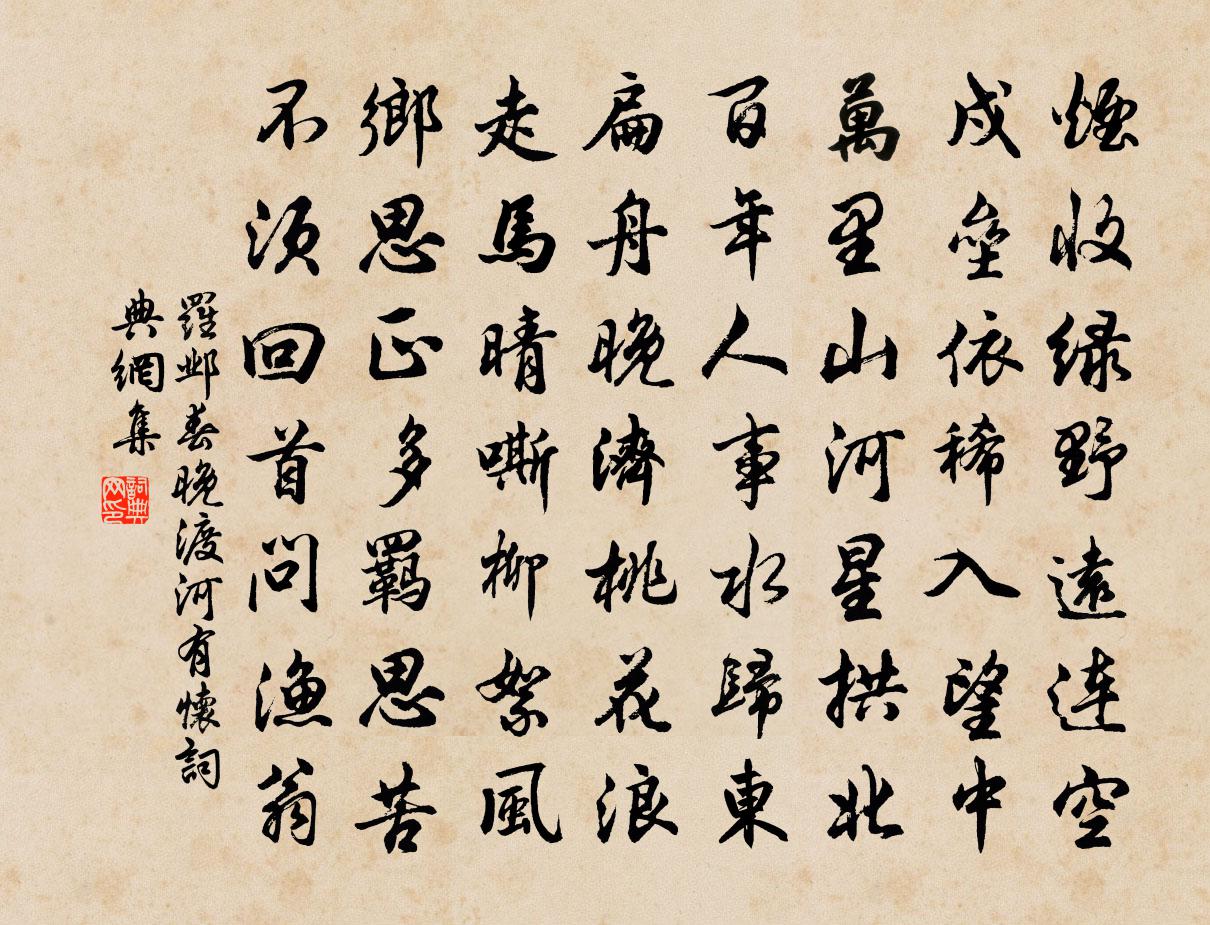 煙收綠野遠連空
戍壘依稀入望中
萬里山河星拱北
百年人事水歸東
扁舟晚濟桃花浪
走馬晴嘶柳絮風
鄉思正多羈思苦
不須回首問漁翁
羅鄴春晚渡河有懷詞
典網集
詞典
网印